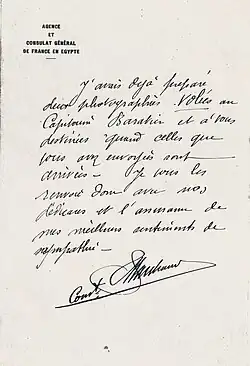 AGENCE
ET
CONSULAT GÉNÉRAL
DE FRANCE EN EGYPTE
J'avais déjà préparé
deux photographies au
Capitaine Baratier et à vous
destinées quand celles que
vous avez envoyées sont
arrivées – Je vous les
renvoie donc avec nos
dédicaces et l'assurance de
mes meilleurs sentiments de
sympathie –
Marchand